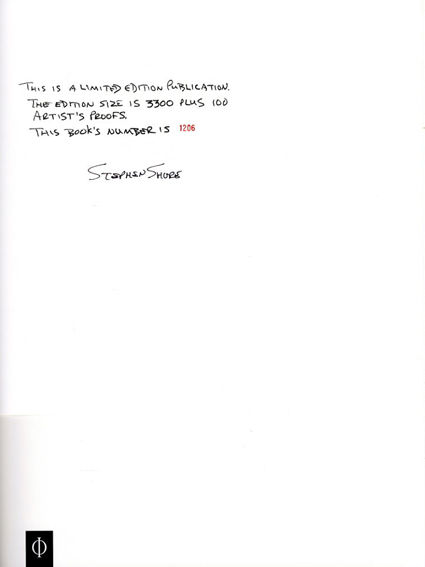 THIS IS A LIMITED EDITION PUBLICATION.
THE EDITION SIZE IS 3300 PLUS 100
ARTIST'S PROOFS.
THIS BOOK'S NUMBER IS 1206
STEPHEN SHORE